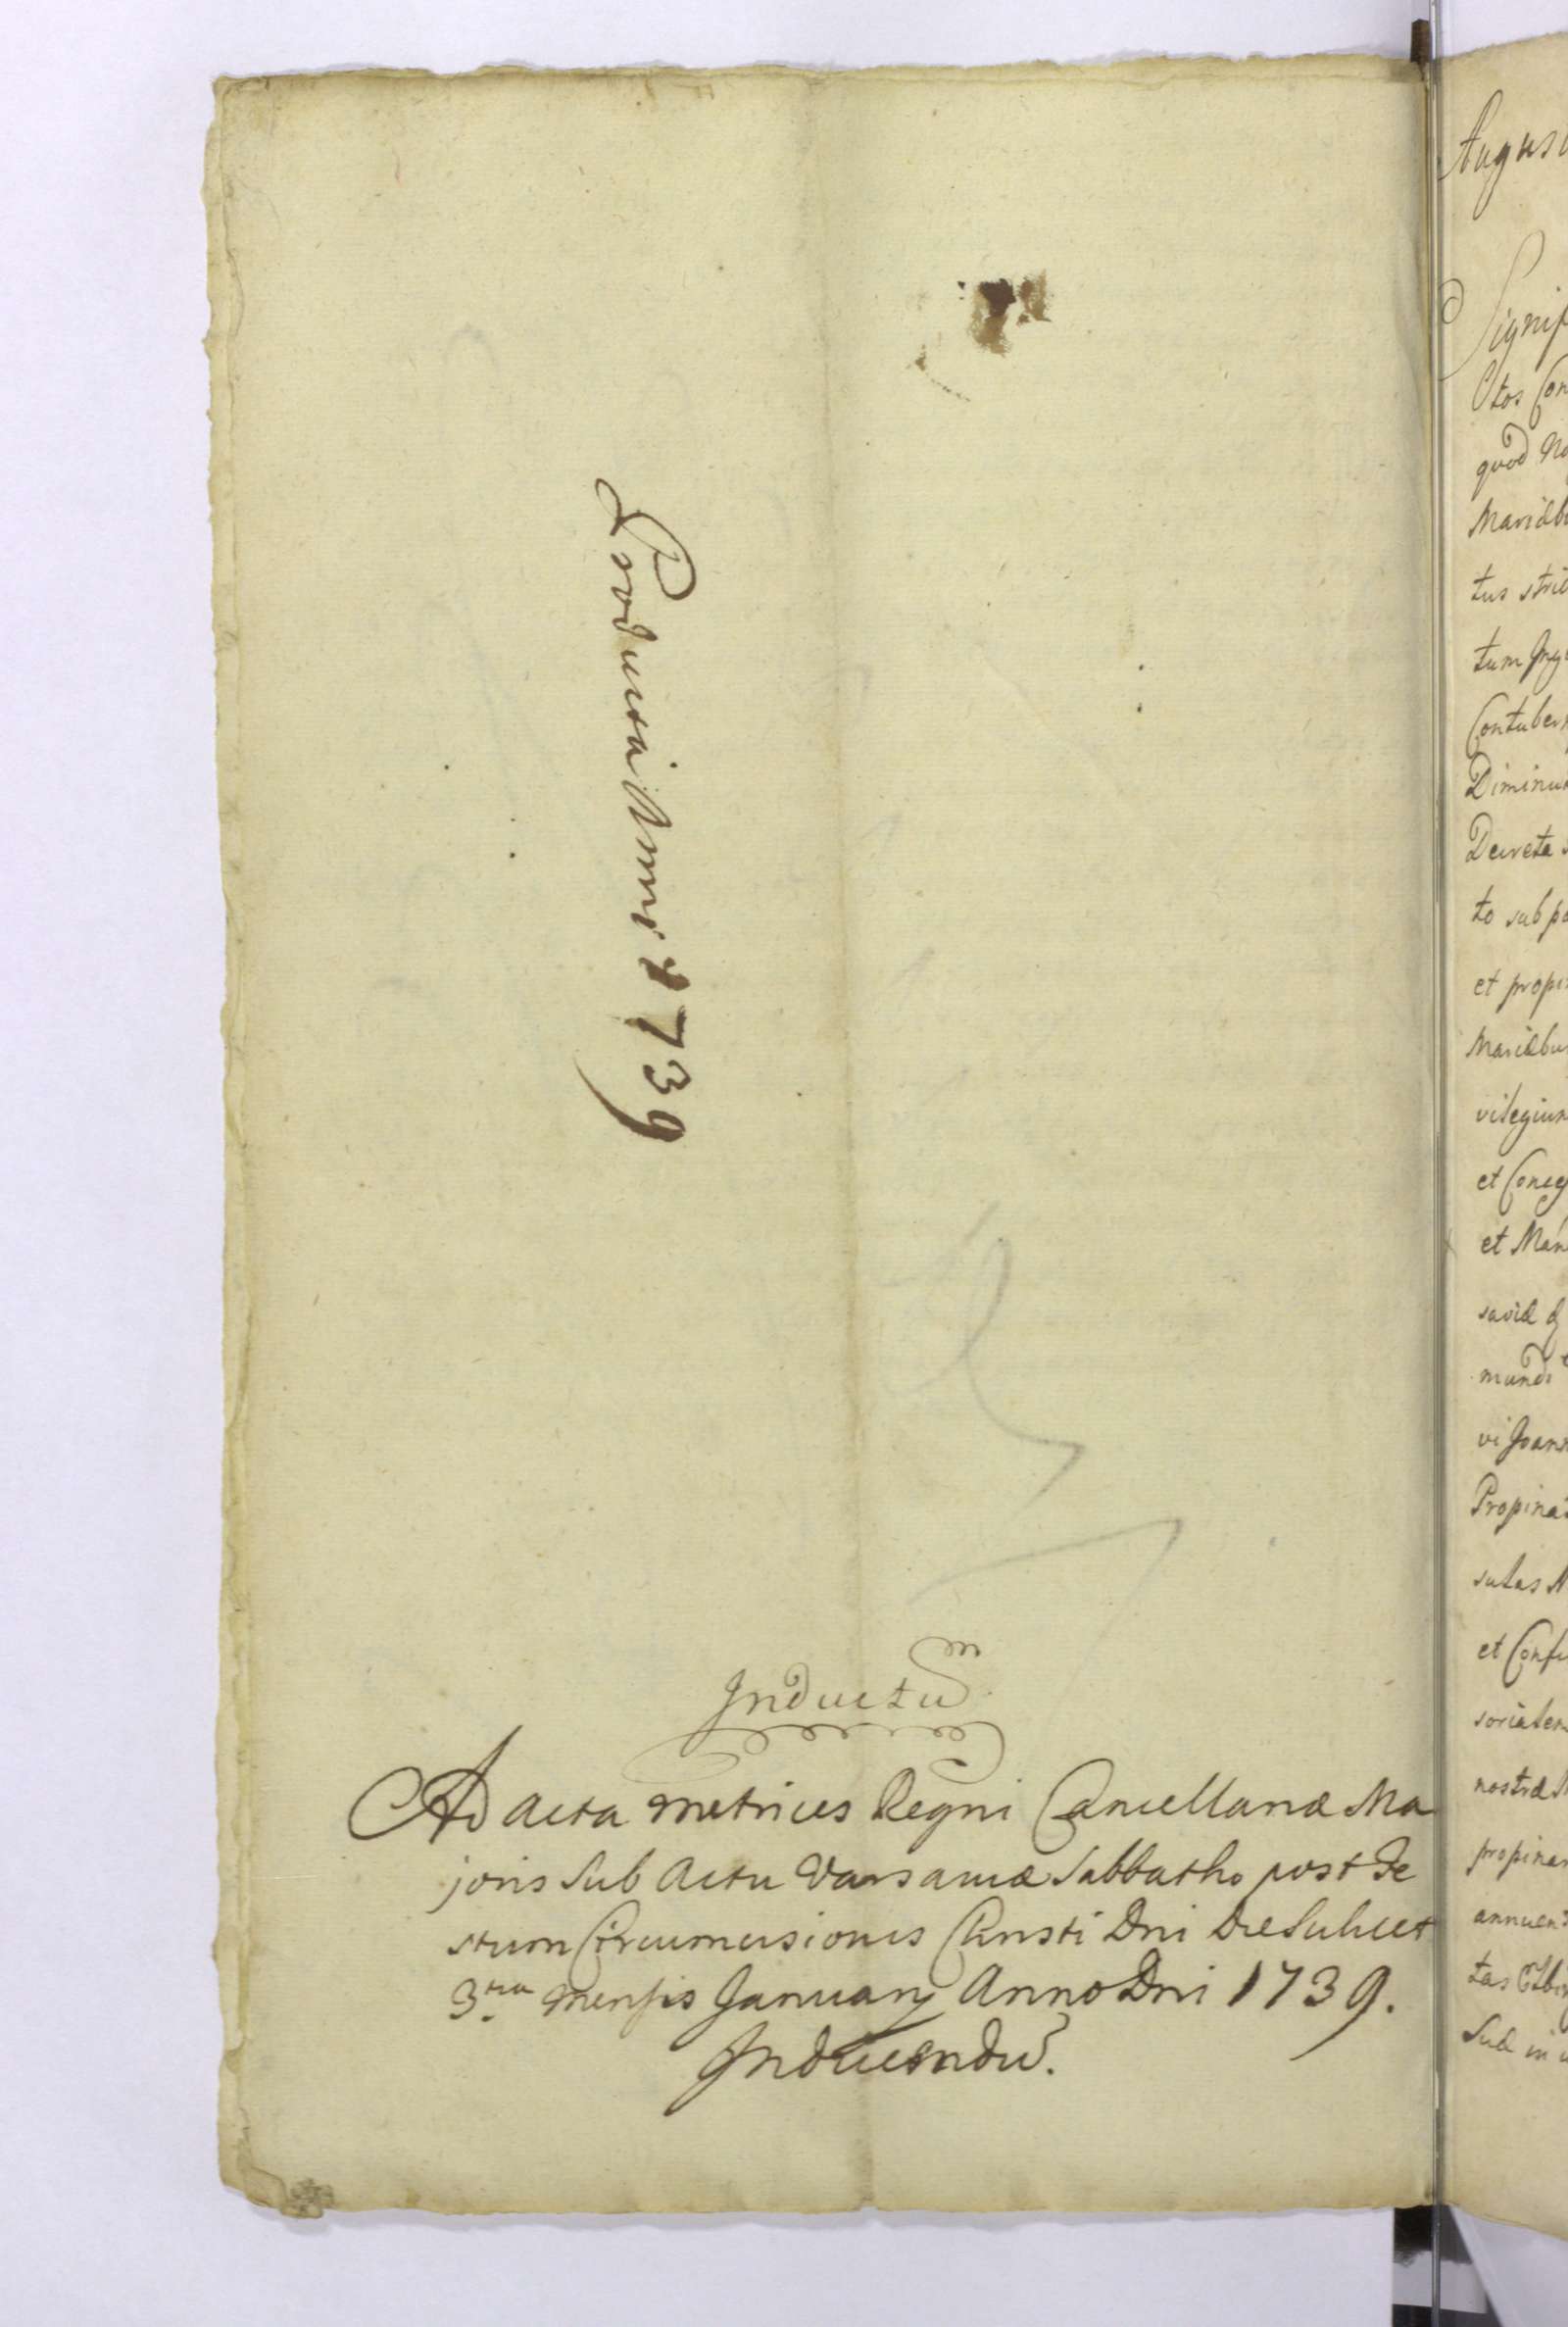 Producta Anni 1739
Inductũ
Ad acta metrices Regni Cancellariæ Ma
joris sub actu Varsaviæ Sabbatho post Fe
stum Circumcisionis Christi Dni die scilicet
3tia mensis January Anno Dni 1739.
Inducendũ.
August
Signif
tos Con
quod No
Mariæb
tus stric
tum
Contuber
Diminu
Decreta
to sub po
et propi
Mariæbu
vilegium
et
et Man
saviæ
mundi
vi Joan
Propina
sulas
et
sorialem
nostræ
propinan
annuen
tas Elbi
Suæ in